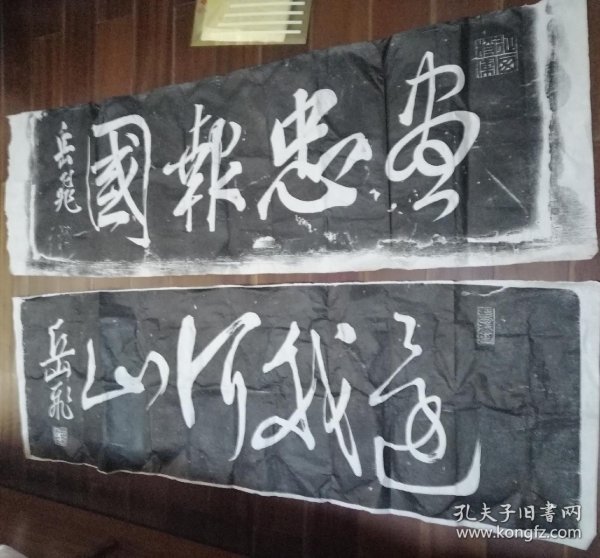 盡忠報國
岳飛
還我河山
岳飛
孔夫子旧書网
www.kongfz.com